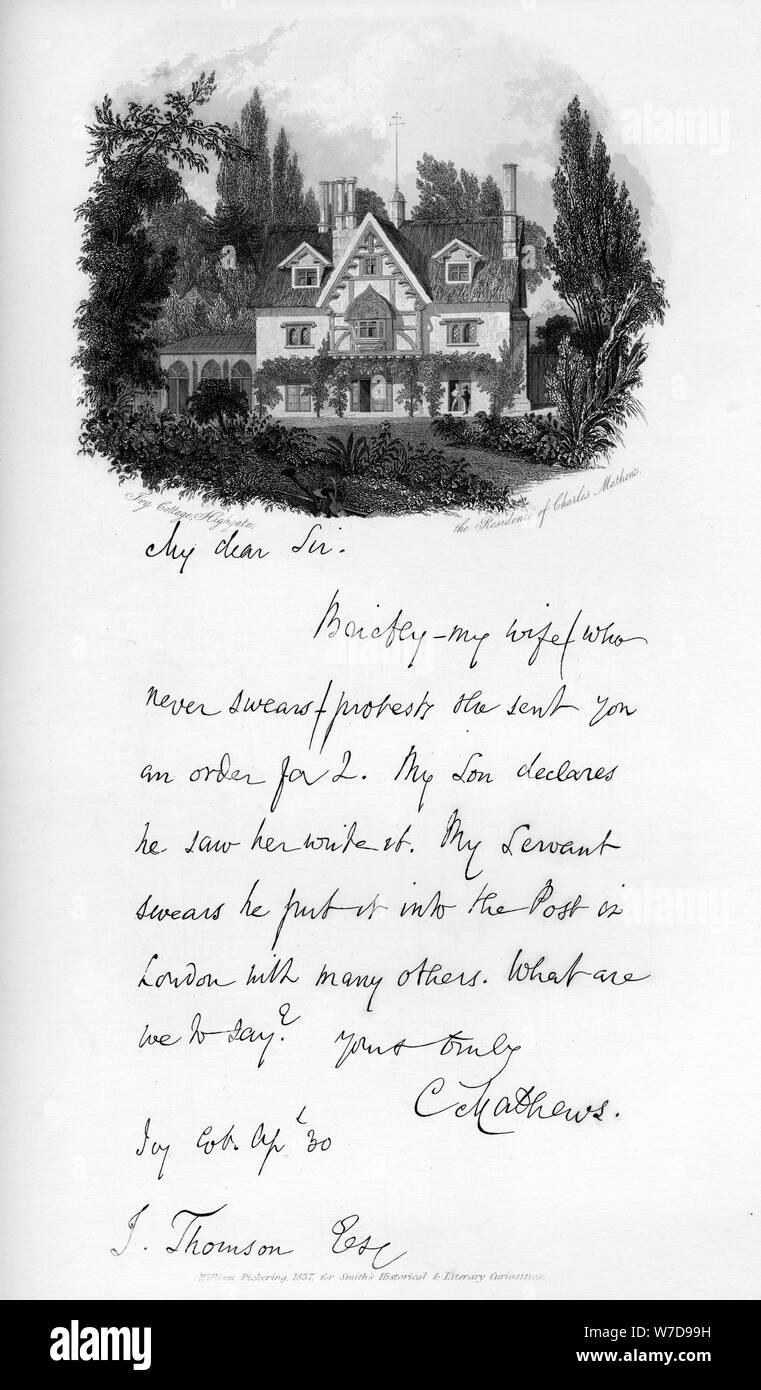 Ivy Cottage, Highgate.
the Residence of Charles Mathews.
My dear Sir.
Briefly - my wife (who
never swears) protests she sent you
an order for 2. My Son declares
he saw her write it. My Servant
swears he put it into the Post in
London with many others. What are
we to say? yours truly
C Mathews.
Ivy Cot. Apl 30
J. Thomson Esq
William Pickering, 1837, for Smith's Historical & Literary Curiosities.
alamy
alamy
alamy
a
a
a
alamy
Image ID: W7D99H
www.alamy.com